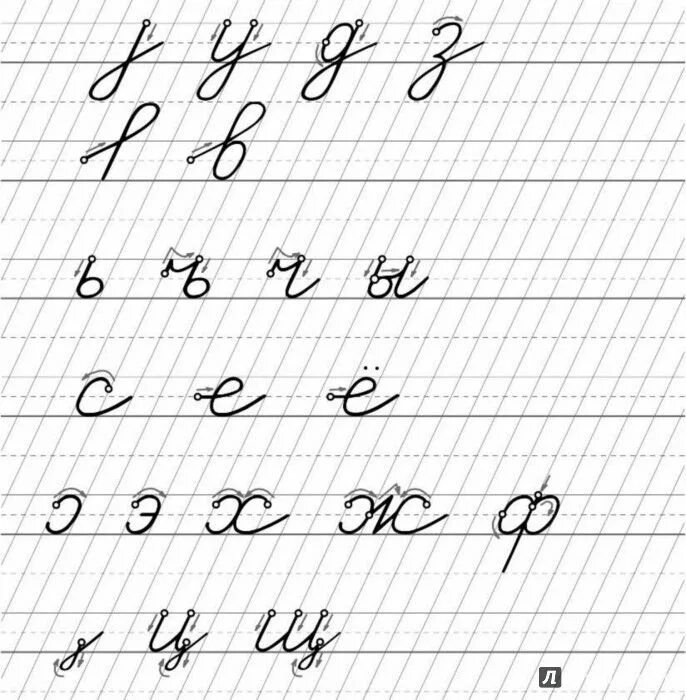 у д з
в
ь ъ ч ы
с е ё
э х ж ф
ц щ
л